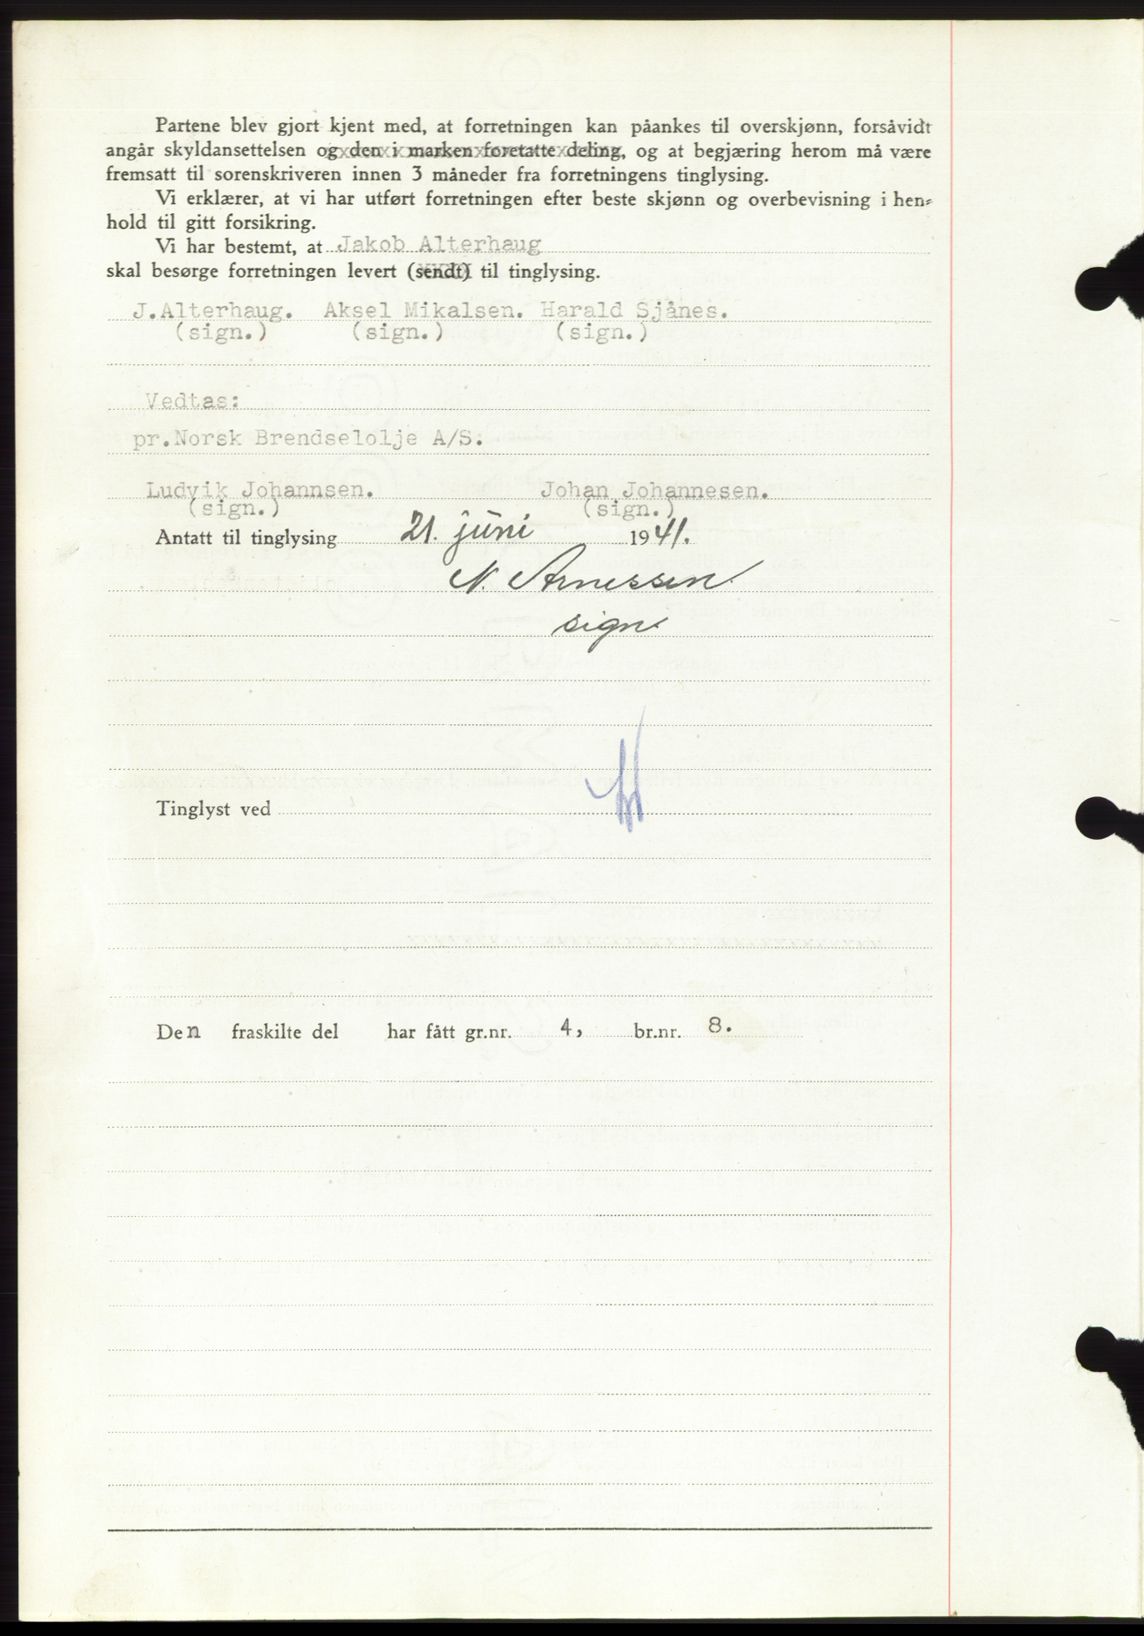 Partene blev gjort kjent med, at forretningen kan påankes til overskjønn, forsåvidt
angår skyldansettelsen og den i marken foretatte deling, og at begjæring herom må være
fremsatt til sorenskriveren innen 3 måneder fra forretningens tinglysing.
Vi erklærer, at vi har utført forretningen efter beste skjønn og overbevisning i hen-
hold til gitt forsikring.
Vi har bestemt, at Jakob Alterhaug
skal besørge forretningen levert (sendt) til tinglysing.
J.Alterhaug. Aksel Mikalsen. Harald Sjånes.
(sign.) (sign.) (sign.)
Vedtas:
pr.Norsk Brendselolje A/S.
Ludvik Johannsen. Johan Johannesen.
(sign.) (sign.)
Antatt til tinglysing 21. juni 1941.
N. Arnessen
sign.
Tinglyst ved
Den fraskilte del har fått gr.nr. 4, br.nr. 8.